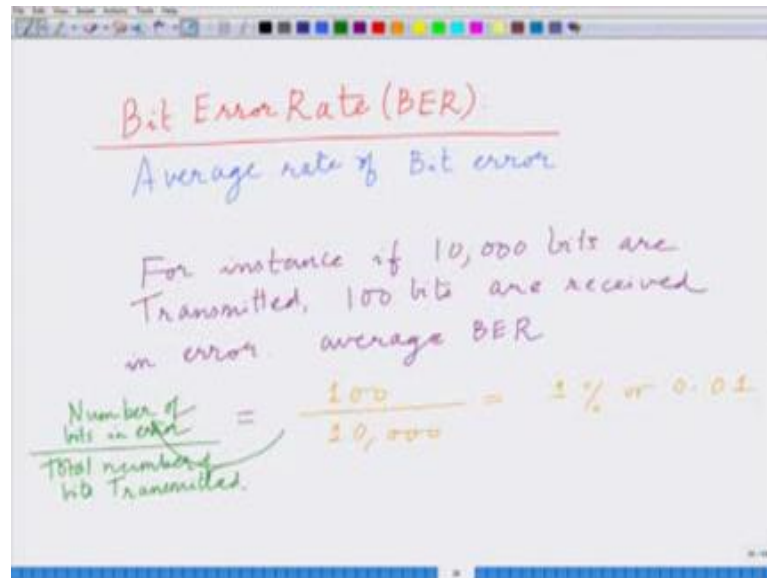 Bit Error Rate (BER)
Average rate of Bit error
For instance if 10,000 bits are
Transmitted, 100 bits are received
in error. average BER
Number of
bits in error
Total number of
bits Transmitted.
=
100
10,000
= 1 % or 0.01